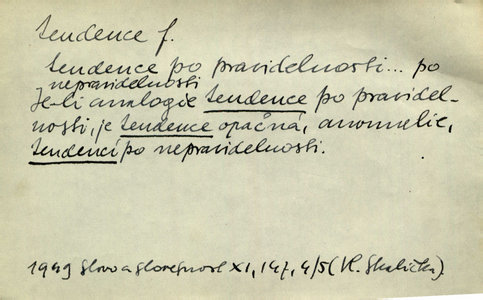 tendence f.
tendence po pravidelnosti... po
nepravidelnosti
Je-li analogie tendence po pravidel-
nosti, je tendence opačná, anomalie,
tendencí po nepravidelnosti.
1949 Slovo a slovesnost XI, 147, 4/5 (V. Skalička)